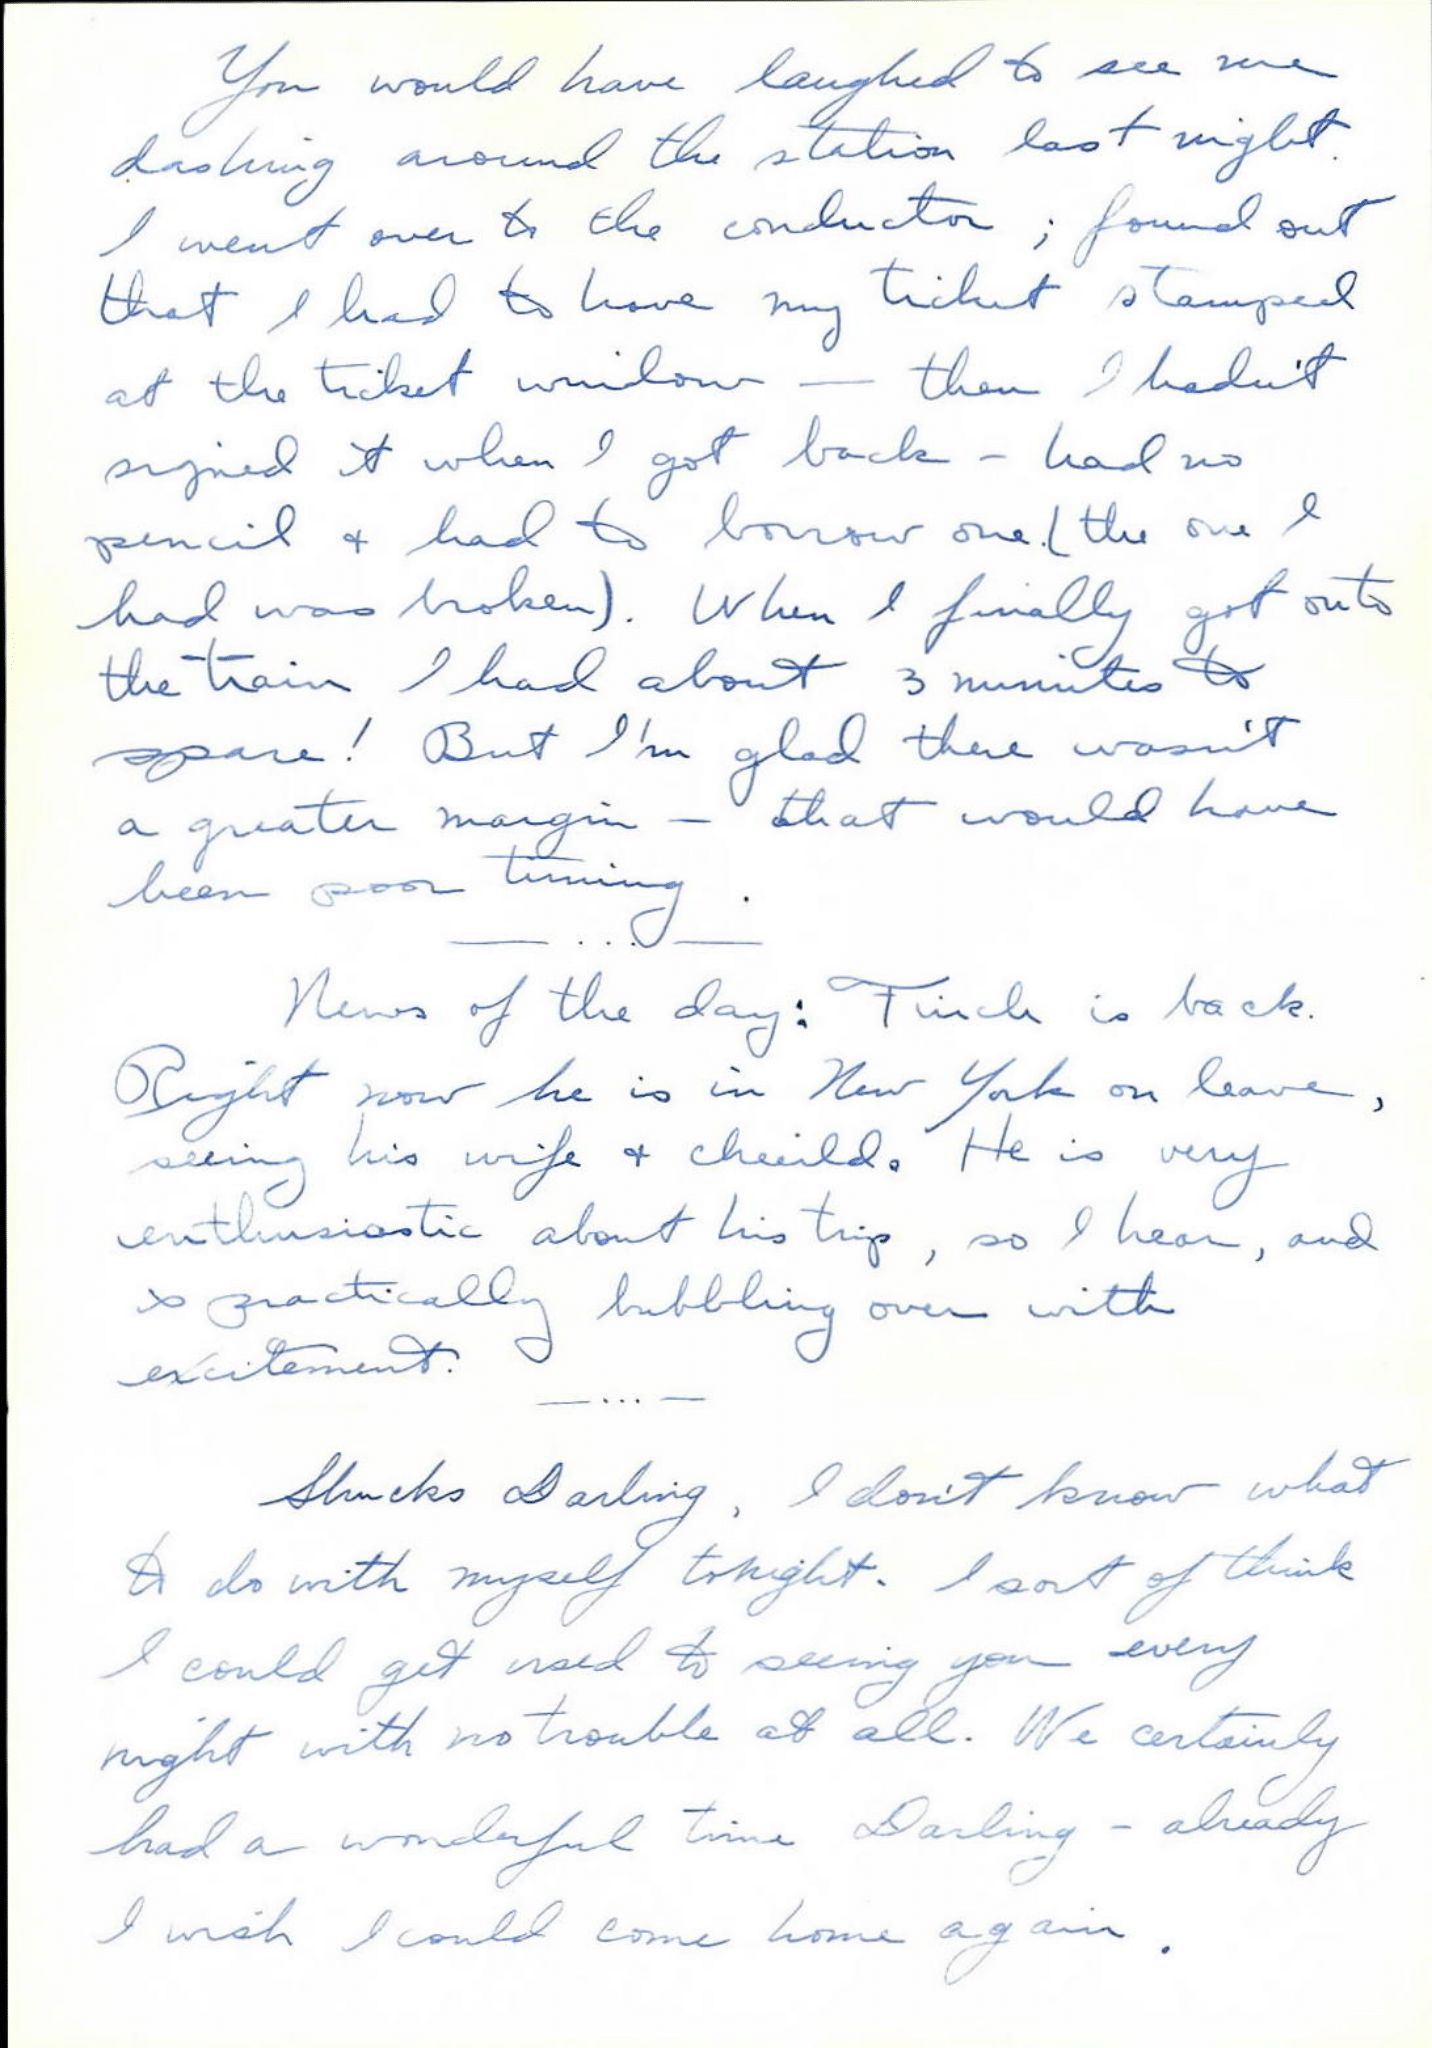 You would have laughed to see me
dashing around the station last night.
I went over to the conductor; found out
that I had to have my ticket stamped
at the ticket window — then I hadn't
signed it when I got back - had no
pencil & had to borrow one. (the one I
had was broken). When I finally got onto
the train I had about 3 minutes to
spare! But I'm glad there wasn't
a greater margin - that would have
been poor timing.
— ... —
News of the day: Finch is back.
Right now he is in New York on leave,
seeing his wife & cheild. He is very
enthusiastic about his trip, so I hear, and
is practically bubbling over with
excitement.
— ... —
Shucks Darling, I don't know what
to do with myself tonight. I sort of think
I could get used to seeing you every
night with no trouble at all. We certainly
had a wonderful time Darling - already
I wish I could come home again.